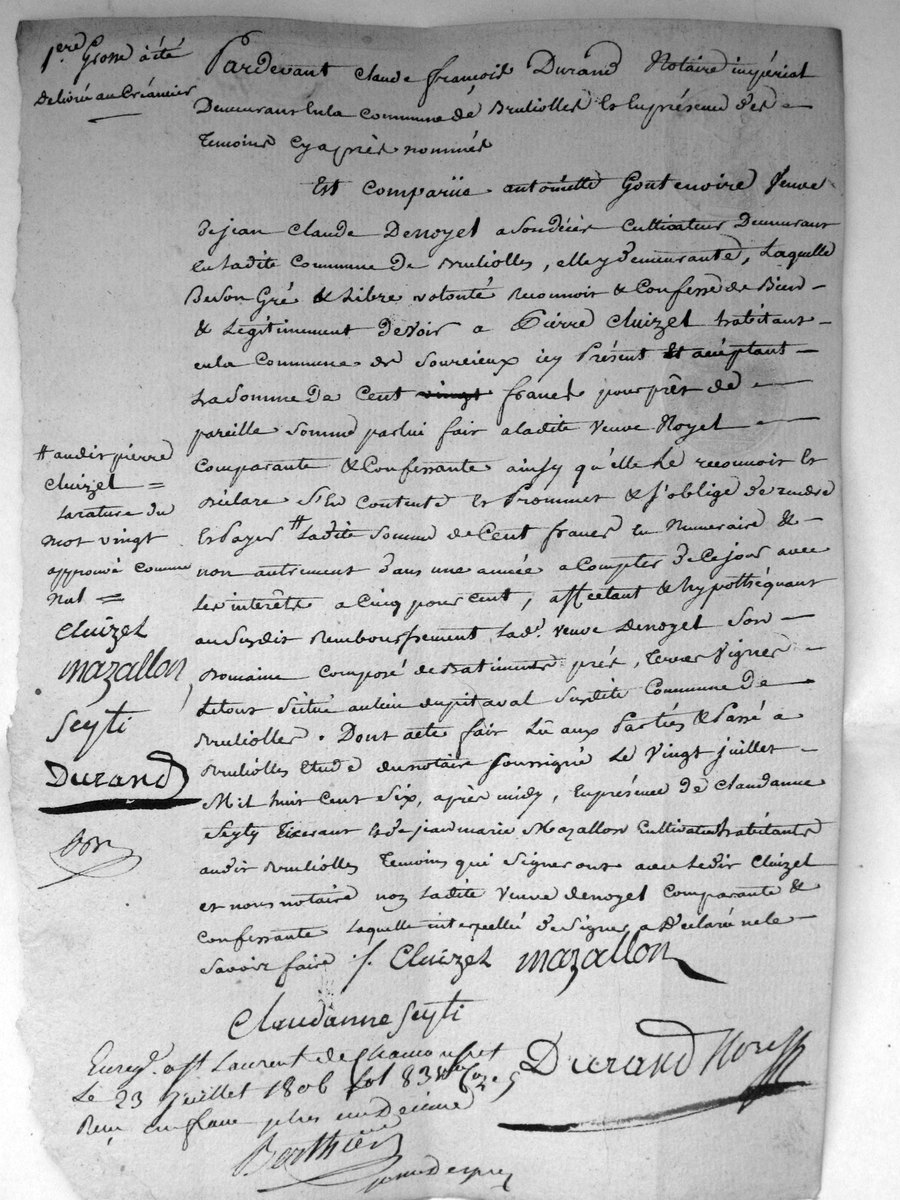 1ere Grosse a été
Delivré au Créancier
Pardevant Claude françois Durand Notaire impérial
Demeurant en la Commune de Bruliolles & En présence des
Temoins Cy après nommés
Est Comparüe antoinette Goutenoire Veuve
de jean Claude Denoyel a Son décès Cultivateur Demeurant
en ladite Commune de Bruliolles, elle y demeurante, Laquelle
De Son Gré & Libre volonté Reconnoit & Confesse de Bien
& Légitimement devoir a Pierre Cluizel habitant
en la Commune de Sourcieux icy Présent Et acceptant
La Somme De Cent vingt francs pour prêt de
pareille Somme par lui fait a ladite Veuve Noyel
Comparante & Confessante ainsy qu'elle Le reconnoit Et
Déclare S'en Contente Et Promet & s'oblige de rendre
Et Payer # Ladite Somme de Cent francs En Numeraire &
non autrement dans une année a Compter de Ce jour avec
Les interêts a Cinq pour Cent, affectant & hypothéquant
au Susdit Remboursement Lade. Veuve Denoyel Son
Domaine Composé de Batiments, prés, Terres Vignes
Le tout Situé au lieu du pitaval Susdite Commune De
Bruliolles. Dont acte fait Lû aux Parties & Passé a
Bruliolles Etude du notaire Soussigné Le Vingt juillet
Mil huit Cent Six, après midy, En présence de Claudanne
Seyty Tixerant & de jean marie Mazallon Cultivateur habitants
audit Bruliolles Temoins qui Signeront avec Ledit Cluizel
et nous notaire non Ladite Veuve denoyel Comparante &
Confessante Laquelle interpellé de Signer a Déclaré ne le
Savoir faire /. Cluizel mazallon
Claudanne Seyti
Durand
# audit pierre
Cluizel =
La rature du
mot vingt
approuvé comme
Nul =
Cluizel
mazallon
Seyti
Durand
Enregé. a St Laurent de Chamousset
Le 23 juillet 1806 fol 83
Reçu un franc plus un Decime
Berthier